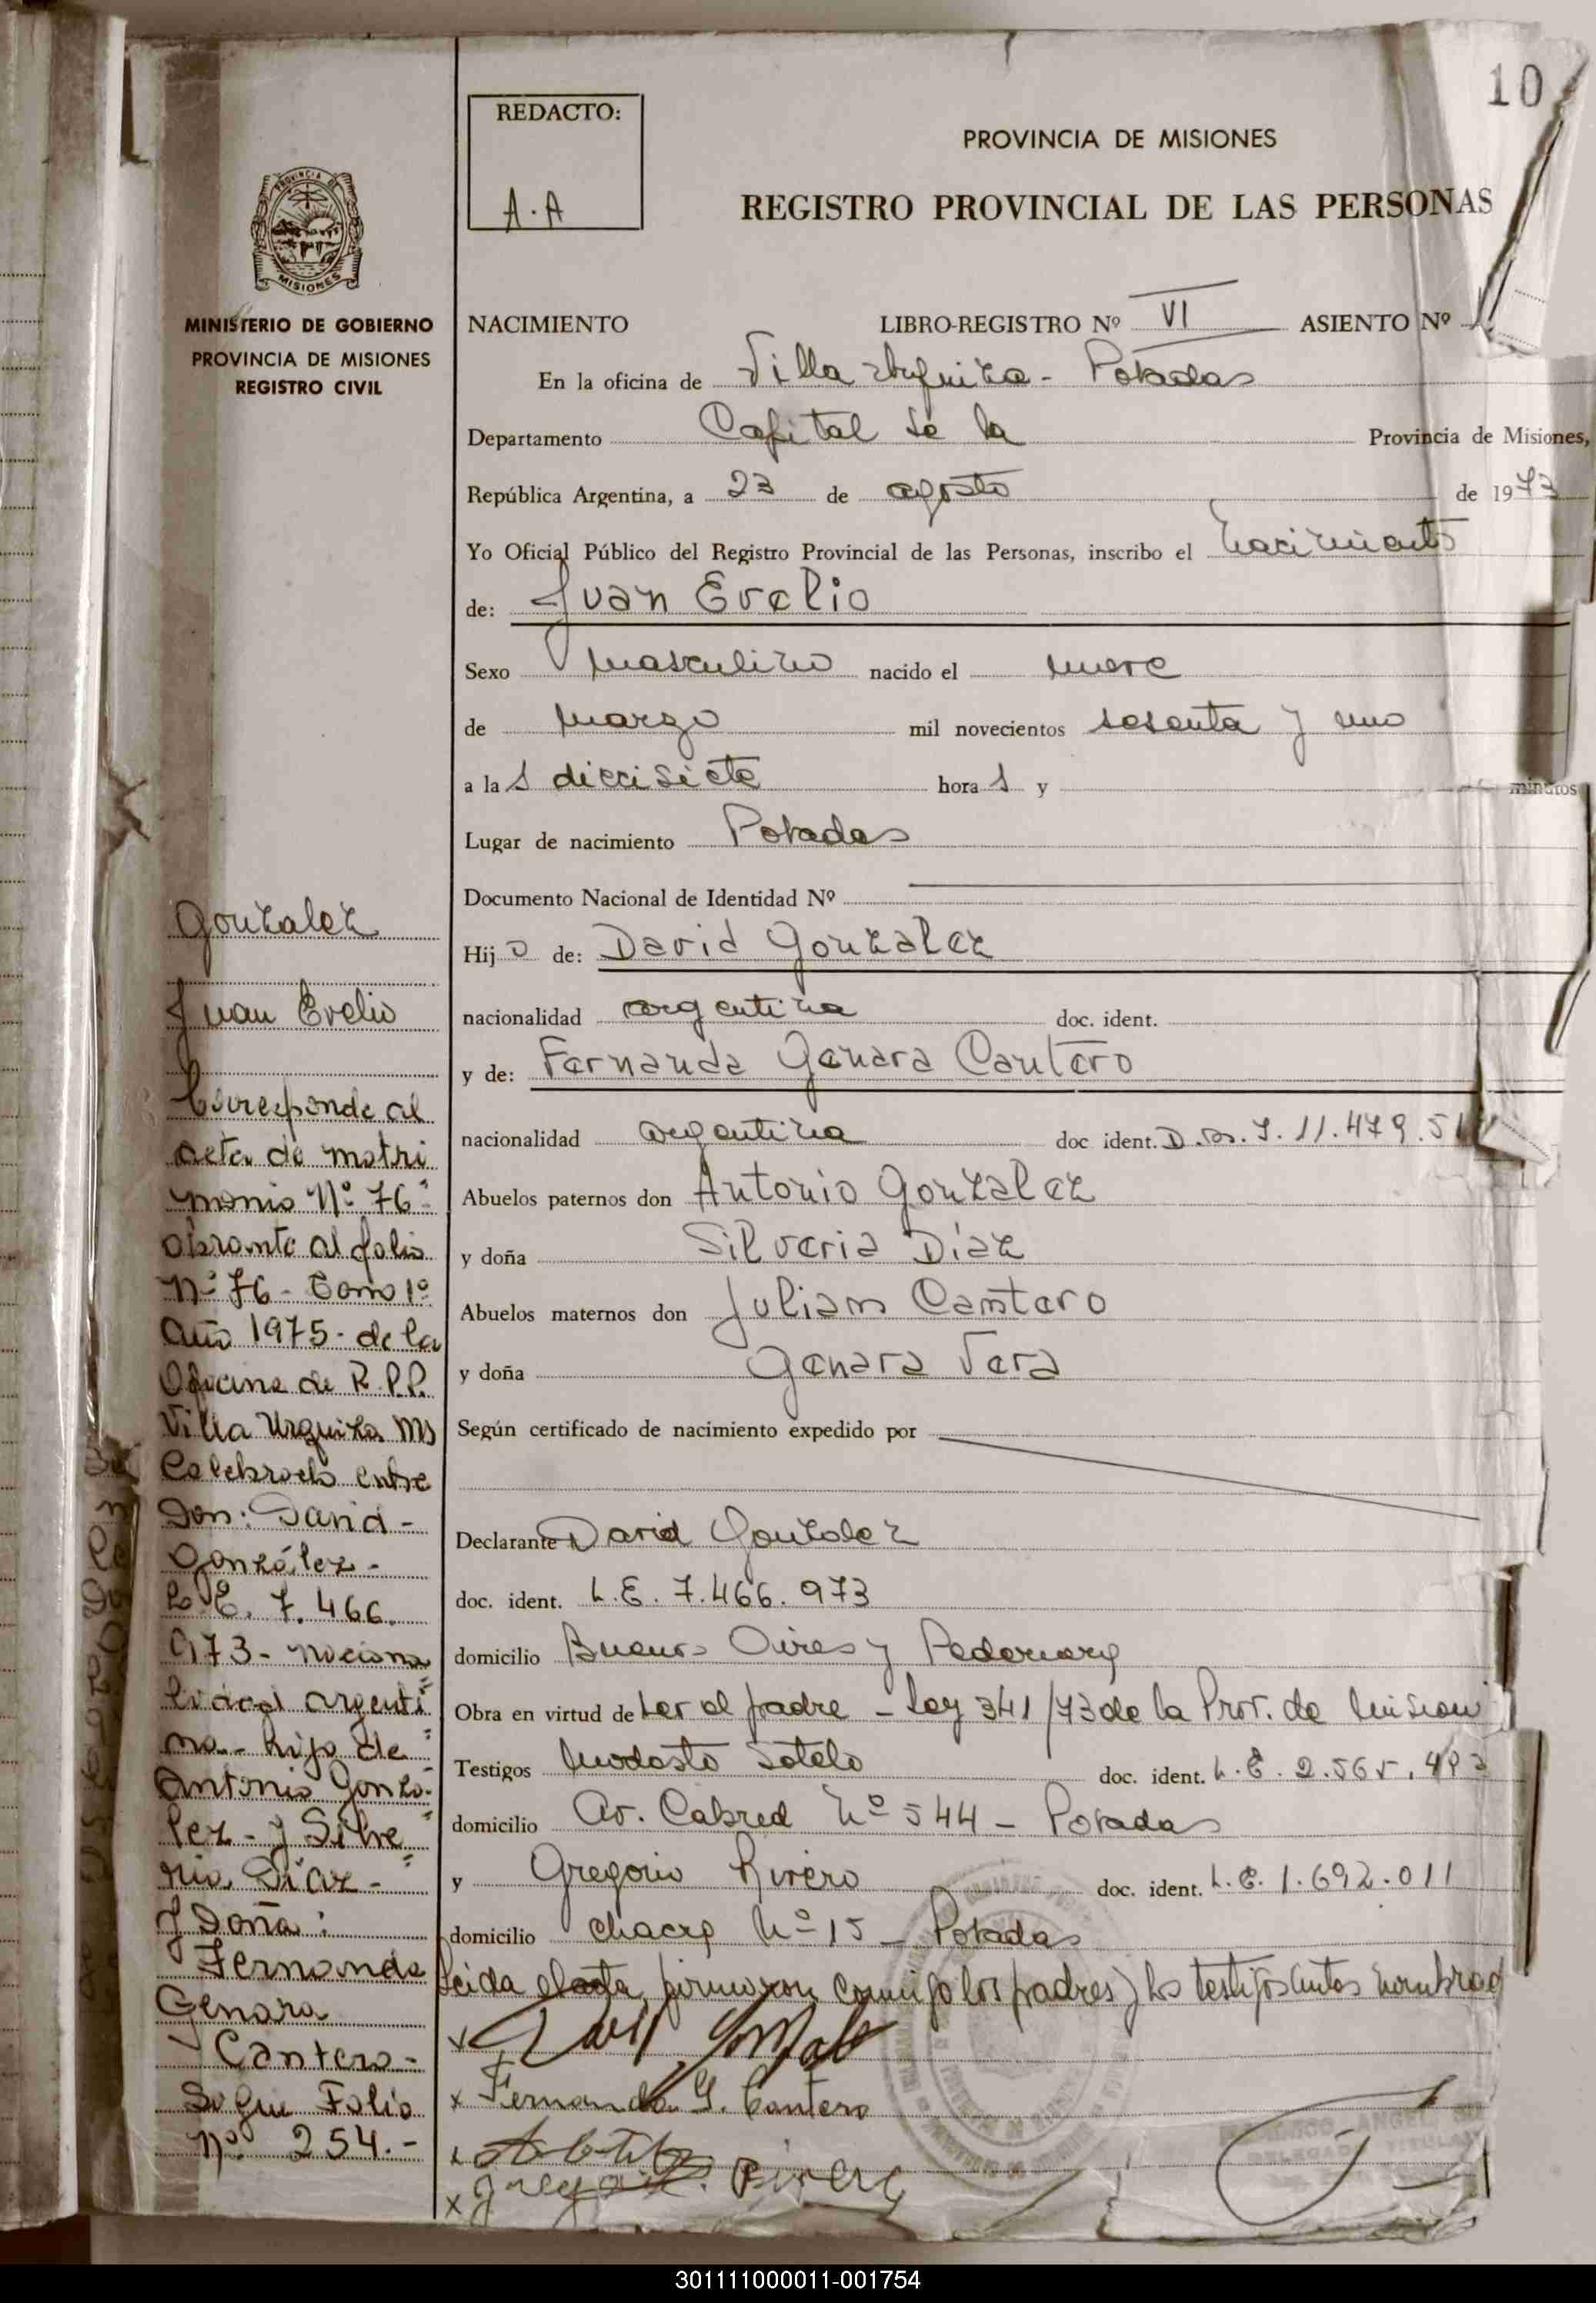 10
REDACTO:
A.A
PROVINCIA DE MISIONES
REGISTRO PROVINCIAL DE LAS PERSONAS
PROVINCIA DE
MISIONES
MINISTERIO DE GOBIERNO
PROVINCIA DE MISIONES
REGISTRO CIVIL
NACIMIENTO LIBRO-REGISTRO Nº VI ASIENTO Nº
En la oficina de Villa Urquiza - Posadas
Departamento Capital de la Provincia de Misiones,
República Argentina, a 23 de agosto de 1973
Yo Oficial Público del Registro Provincial de las Personas, inscribo el nacimiento
de: Juan Evelio
Sexo masculino nacido el nueve
de marzo mil novecientos sesenta y uno
a las diecisiete horas y minutos
Lugar de nacimiento Posadas
Documento Nacional de Identidad Nº
Hijo de: David Gonzalez
nacionalidad argentina doc. ident.
y de: Fernanda Genara Cantero
nacionalidad argentina doc ident. D.N.I. 11.479.51
Abuelos paternos don Antonio Gonzalez
y doña Silveria Díaz
Abuelos maternos don Julian Cantero
y doña Genara Vera
Según certificado de nacimiento expedido por
Declarante David Gonzalez
doc. ident. L.E. 7.466.973
domicilio Buenos Aires y
Obra en virtud de ser el padre - Ley 341/73 de la Prov. de Mision
Testigos Modesto Sotelo doc. ident. L.E. 2.565.493
domicilio Av. Cabred Nº 544 - Posadas
y Gregorio Rivero doc. ident. L.E. 1.692.011
domicilio chacra Nº 15 - Posadas
Leida el acta, firmaron conmigo los padres y los testigos antes nombrad
x
x Fernanda G. Cantero
x
x Gregorio Rivero
DELEGADO TITULAR
Gonzalez
Juan Evelio
Corresponde al
acta de matri
monio Nº 76-
obrante al folio
Nº 76 - Tomo 1º
Año 1975 - de la
Oficina de R.P.P.
Villa Urquiza Ms
Celebrado entre
Don: David -
González -
L.E. 7.466.
973 - naciona
lidad argenti
na - hijo de
Antonio Gonzá-
lez - y Silve
ria Díaz -
y Doña:
Fernanda
Genara
Cantero -
Sigue Folio
Nº 254.-
301111000011-001754